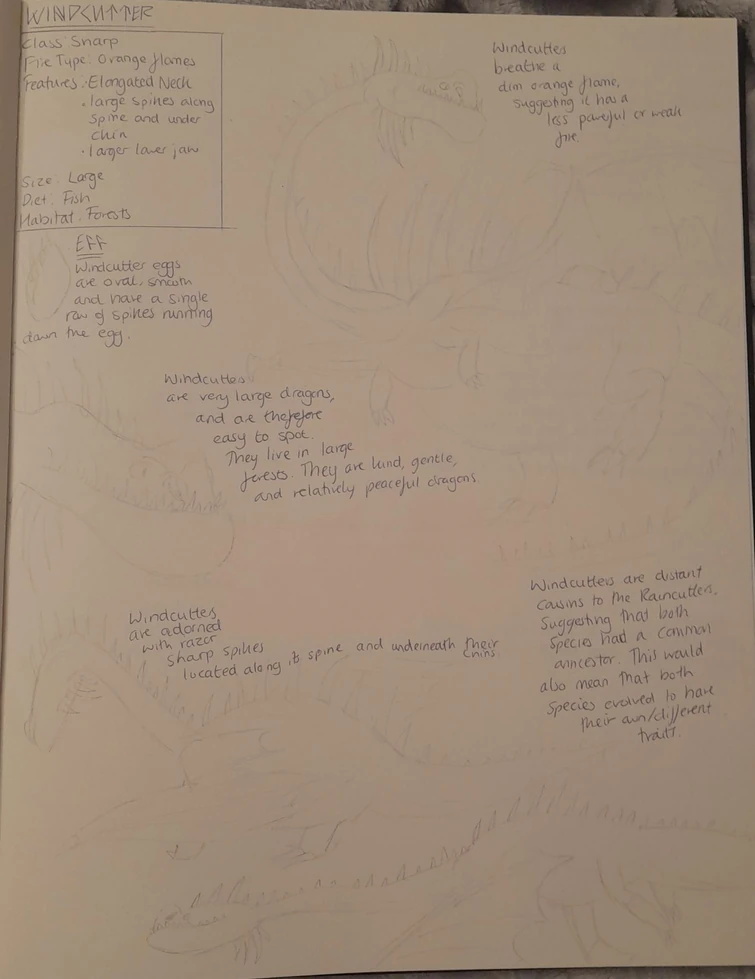 WINDCUTTER
Class: Sharp
Fire Type: Orange flames
Features: Elongated Neck
• large spikes along
spine and under
chin
• larger lower jaw
Size: Large
Diet: Fish
Habitat: Forests
Windcutters
breathe a
dim orange flame,
suggesting it has a
less powerful or weak
fire.
EFF
Windcutter eggs
are oval, smooth
and have a single
row of spikes running
down the egg.
Windcutters
are very large dragons,
and are therefore
easy to spot.
They live in large
forests. They are kind, gentle,
and relatively peaceful dragons
Windcutters
are adorned
with razor
sharp spikes
located along its spine and underneath their
chins.
Windcutters are distant
cousins to the Raincutters,
Suggesting that both
Species had a common
ancestor. This would
also mean that both
Species evolved to have
their own/different
traits.